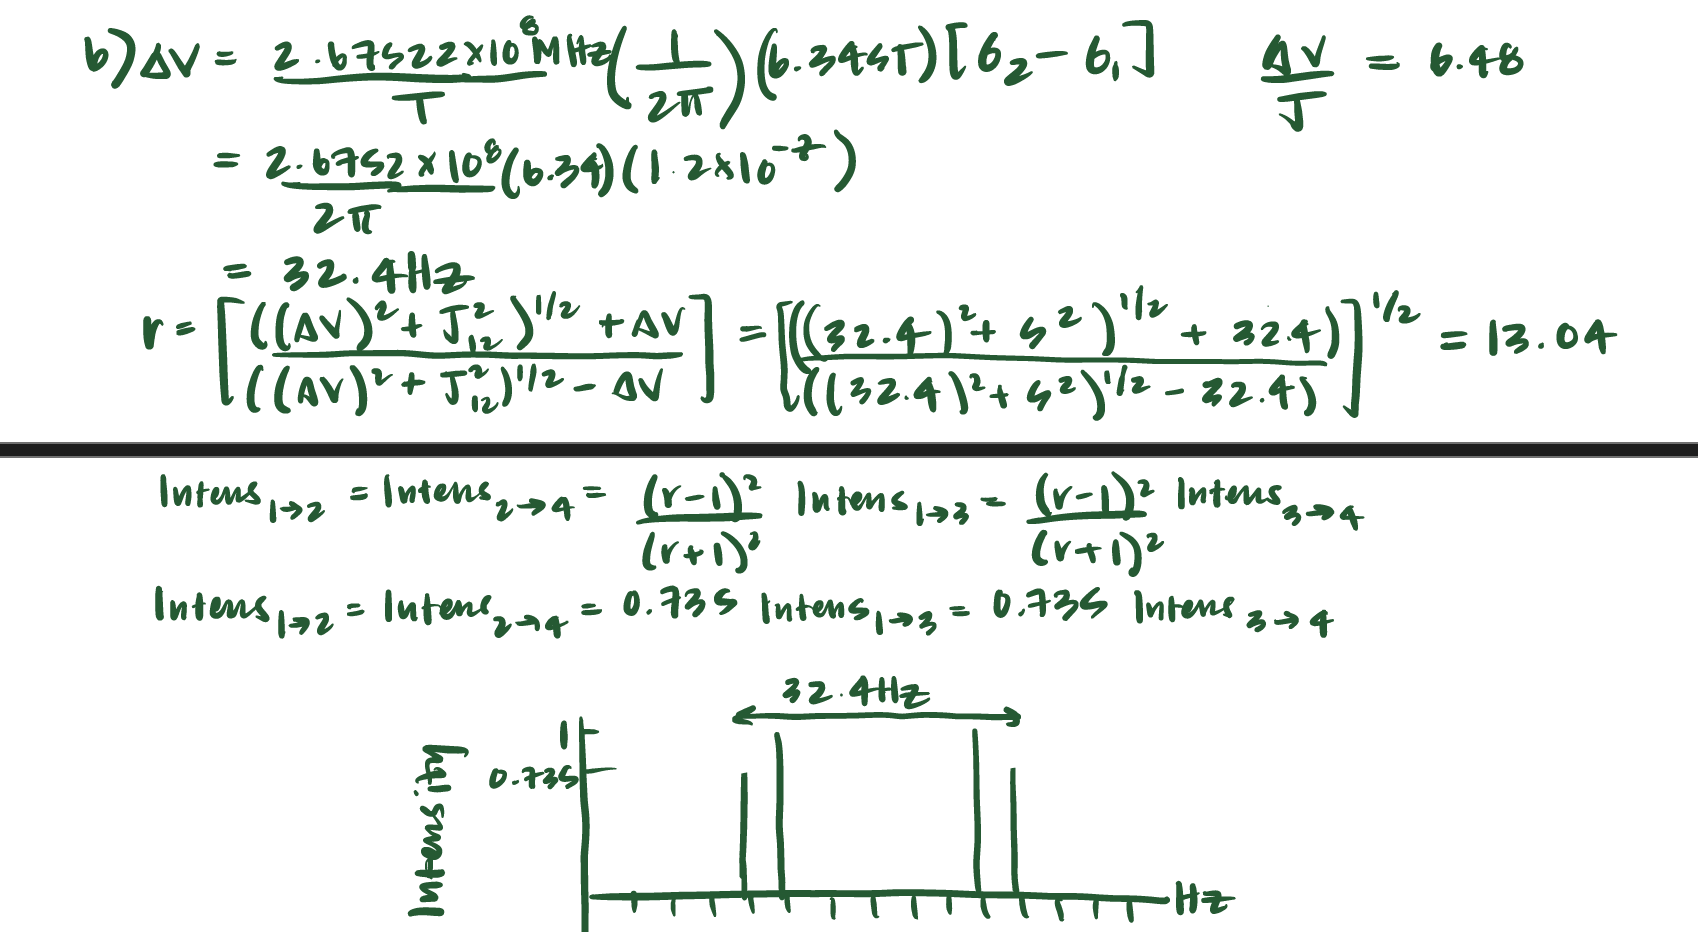 b) ΔV = 2.67522×10⁸ MHz/T (1/2π) (6.345T) [6₂ - 6₁] ΔV/J = 6.48
= 2.6752×10⁸/2π (6.34)(1.2×10⁻⁷)
= 32.4Hz
r = [((ΔV)² + J₁₂²)^1/2 + ΔV / ((ΔV)² + J₁₂²)^1/2 - ΔV] = [(((32.4)² + 5²)^1/2 + 32.4) / (((32.4)² + 5²)^1/2 - 32.4)]^1/2 = 13.04
Intens₁→₂ = Intens₂→₄ = (r-1)²/(r+1)² Intens₁→₃ = (r-1)²/(r+1)² Intens₃→₄
Intens₁→₂ = Intens₂→₄ = 0.735 Intens₁→₃ = 0.735 Intens₃→₄
32.4Hz
1
0.735
Intensity
Hz